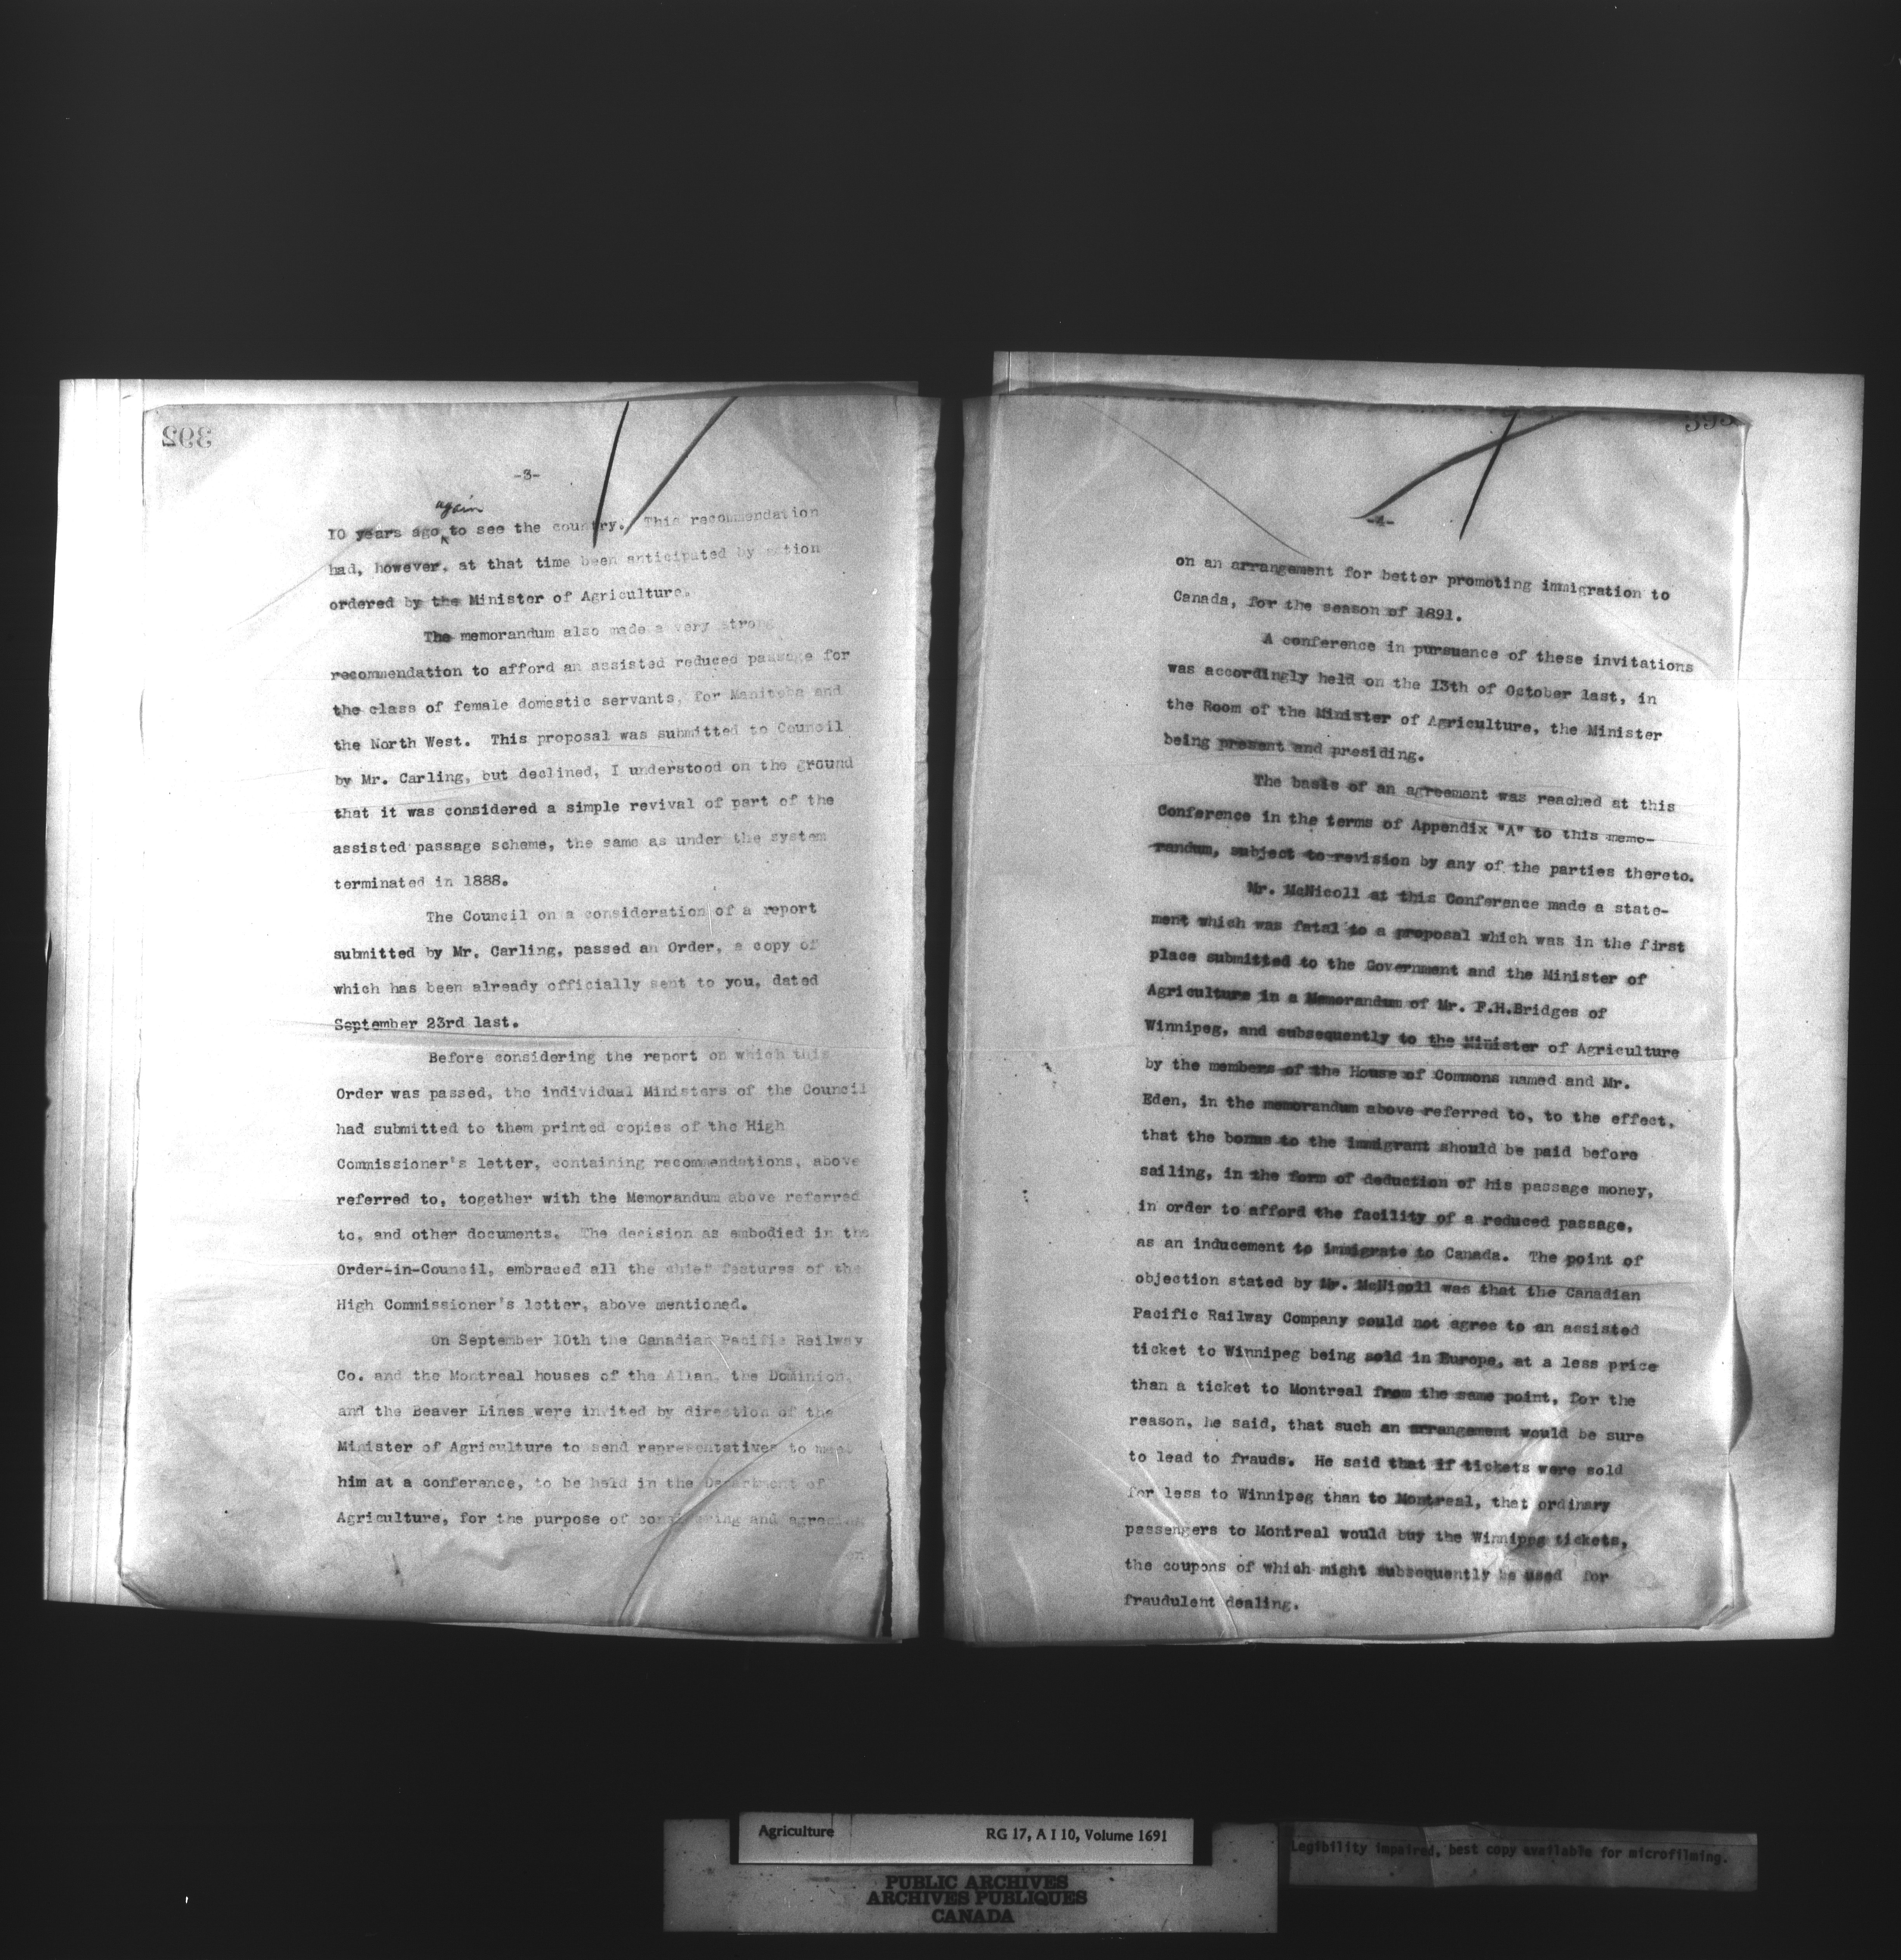 392
-3-
again
10 years ago to see the country. This recommendation
had, however, at that time been anticipated by action
ordered by the Minister of Agriculture.
The memorandum also made a very strong
recommendation to afford an assisted reduced passage for
the class of female domestic servants, for Manitoba and
the North West. This proposal was submitted to Council
by Mr. Carling, but declined, I understood on the ground
that it was considered a simple revival of part of the
assisted passage scheme, the same as under the system
terminated in 1888.
The Council on a consideration of a report
submitted by Mr. Carling, passed an Order, a copy of
which has been already officially sent to you, dated
September 23rd last.
Before considering the report on which this
Order was passed, the individual Ministers of the Council
had submitted to them printed copies of the High
Commissioner's letter, containing recommendations, above
referred to, together with the Memorandum above referred
to, and other documents. The decision as embodied in the
Order-in-Council, embraced all the chief features of the
High Commissioner's letter, above mentioned.
On September 10th the Canadian Pacific Railway
Co. and the Montreal houses of the Allan, the Dominion,
and the Beaver Lines were invited by direction of the
Minister of Agriculture to send representatives to meet
him at a conference, to be held in the Department of
Agriculture, for the purpose of considering and agreeing
on
-4-
on an arrangement for better promoting immigration to
Canada, for the season of 1891.
A conference in pursuance of these invitations
was accordingly held on the 13th of October last, in
the Room of the Minister of Agriculture, the Minister
being present and presiding.
The basis of an agreement was reached at this
Conference in the terms of Appendix "A" to this memo-
randum, subject to revision by any of the parties thereto.
Mr. McNicoll at this Conference made a state-
ment which was fatal to a proposal which was in the first
place submitted to the Government and the Minister of
Agriculture in a Memorandum of Mr. F.H.Bridges of
Winnipeg, and subsequently to the Minister of Agriculture
by the members of the House of Commons named and Mr.
Eden, in the memorandum above referred to, to the effect,
that the bonus to the immigrant should be paid before
sailing, in the form of deduction of his passage money,
in order to afford the facility of a reduced passage,
as an inducement to immigrate to Canada. The point of
objection stated by Mr. McNicoll was that the Canadian
Pacific Railway Company could not agree to an assisted
ticket to Winnipeg being sold in Europe, at a less price
than a ticket to Montreal from the same point, for the
reason, he said, that such an arrangement would be sure
to lead to frauds. He said that if tickets were sold
for less to Winnipeg than to Montreal, that ordinary
passengers to Montreal would buy the Winnipeg tickets,
the coupons of which might subsequently be used for
fraudulent dealing.
Agriculture RG 17, A I 10, Volume 1691
PUBLIC ARCHIVES
ARCHIVES PUBLIQUES
CANADA
Legibility impaired, best copy available for microfilming.